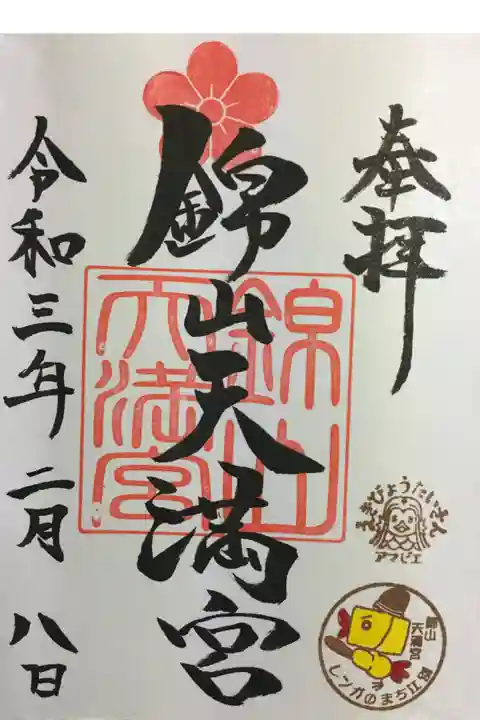 奉拝
錦山天満宮
錦山
天満宮
令和三年二月八日
えきびょうたいさん
アマビエ
錦山
天満宮
レンガのまち江別